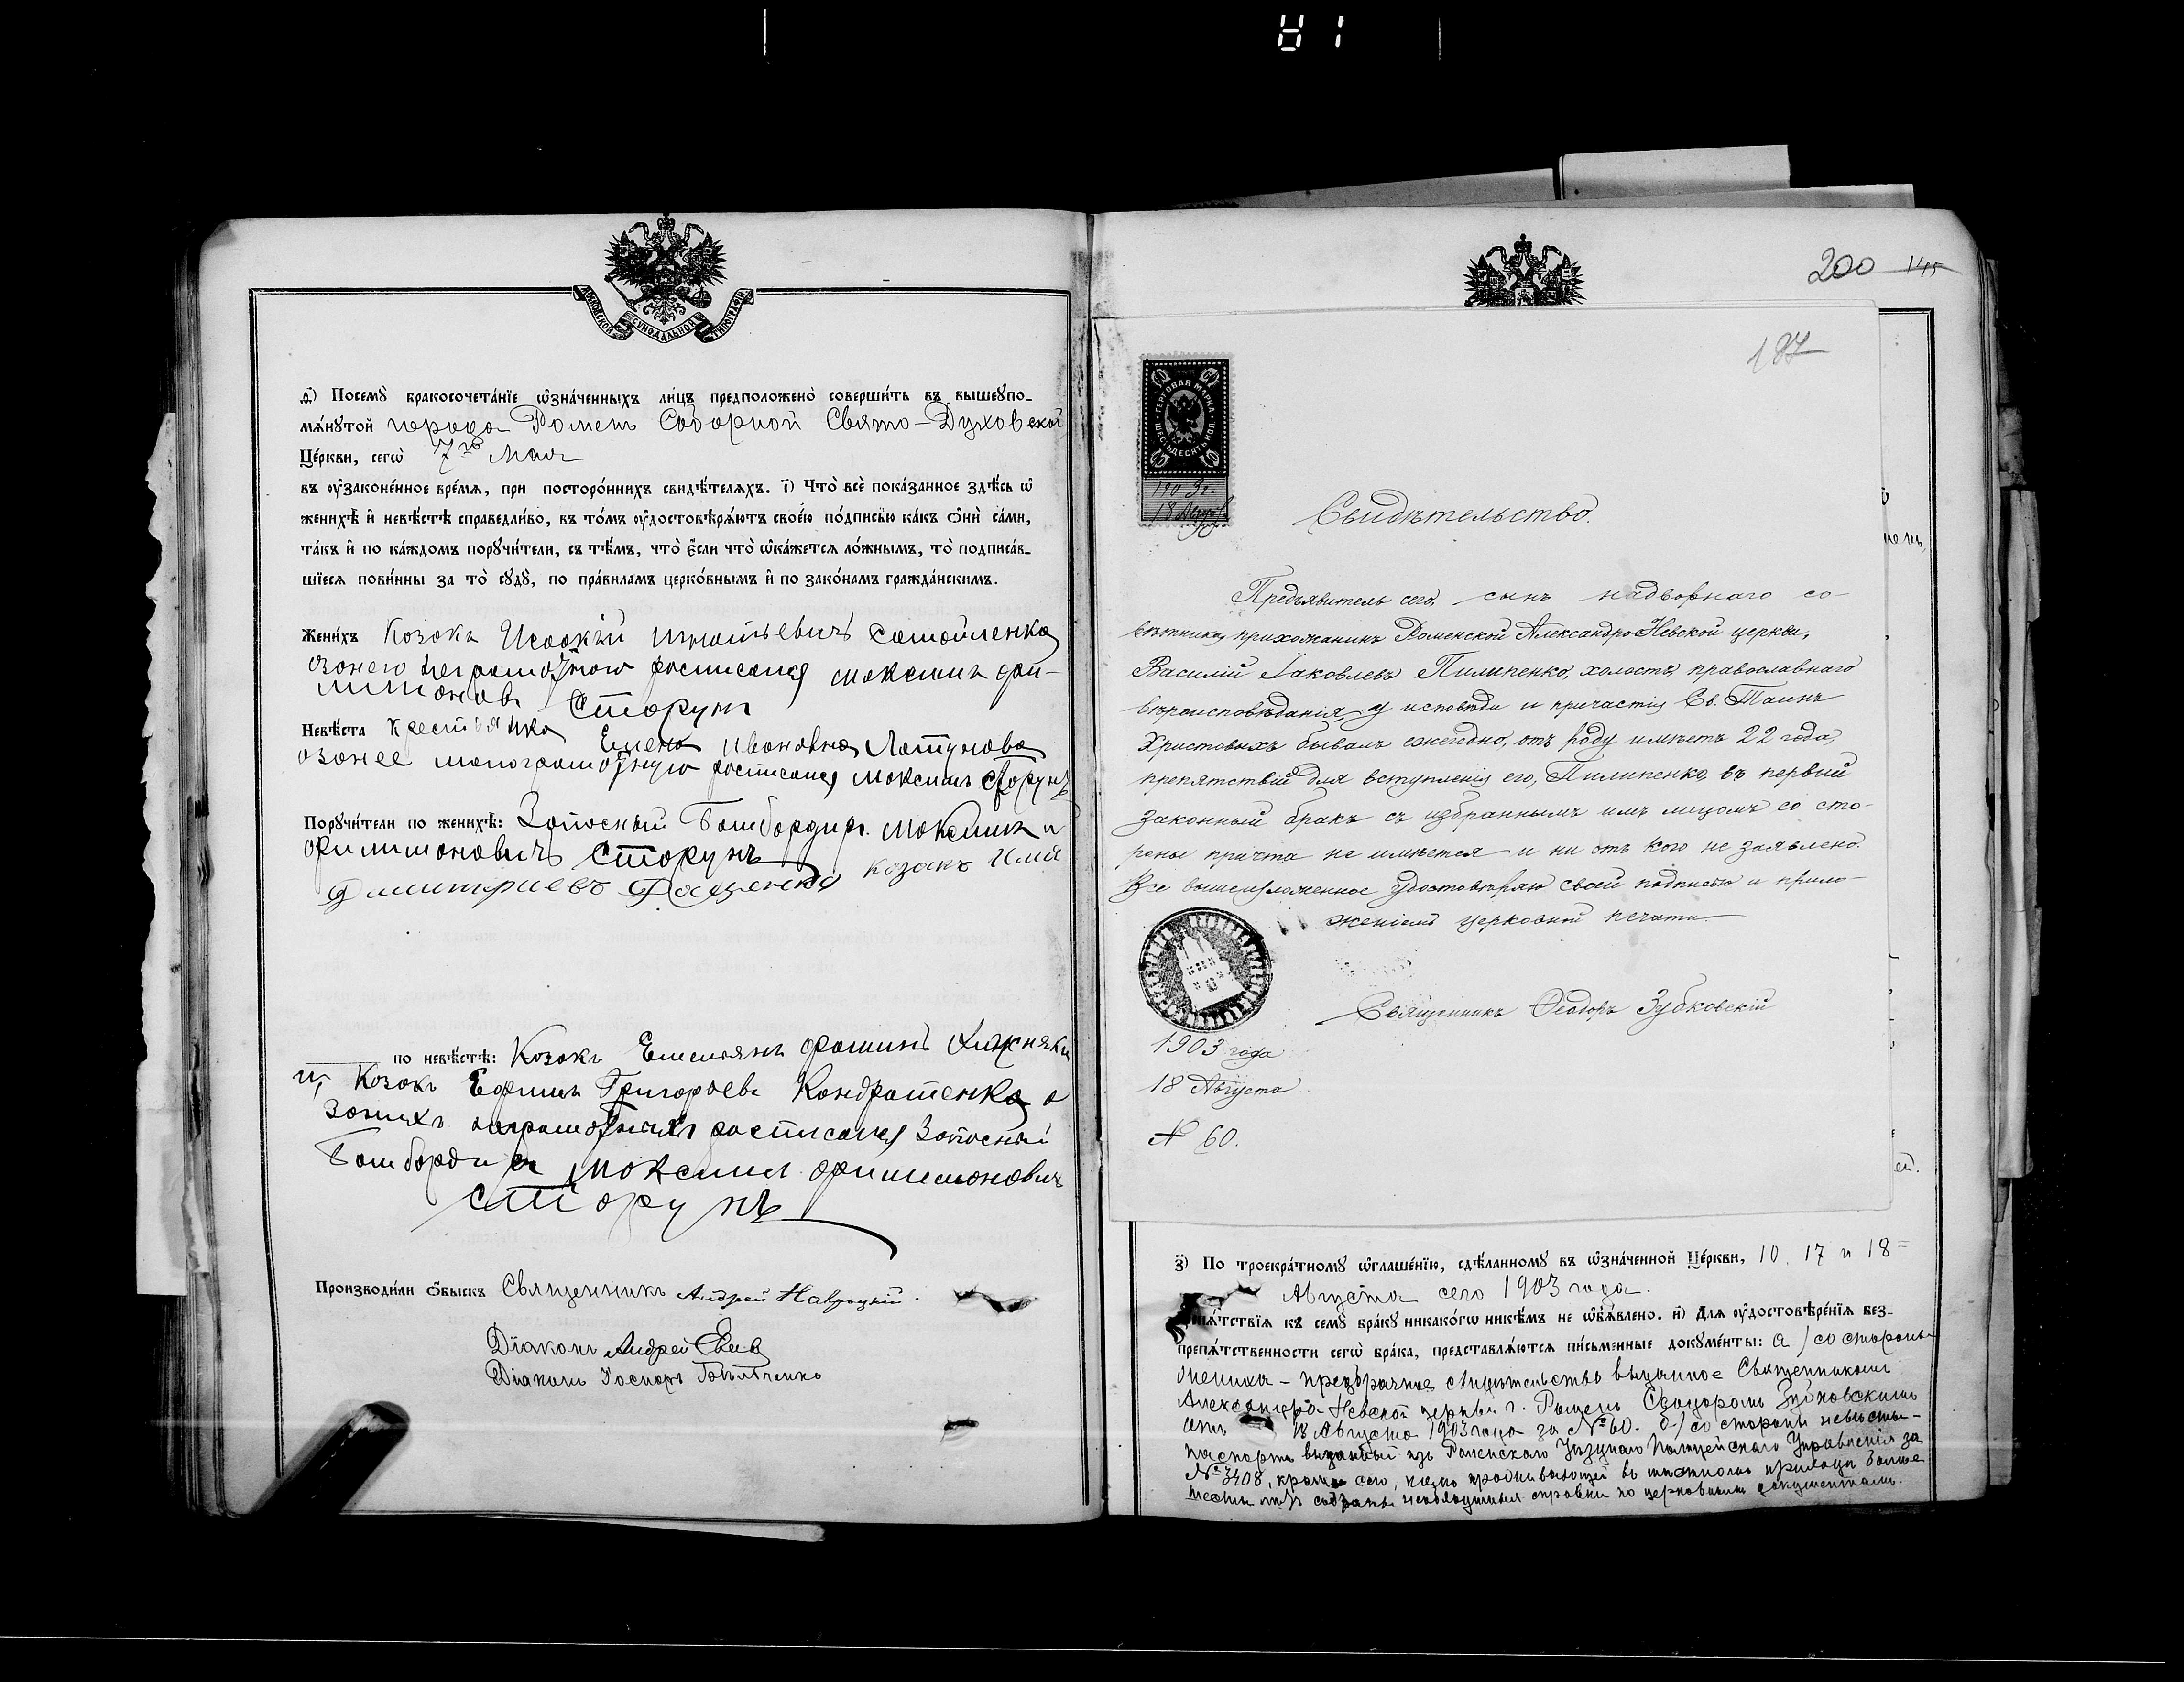 МОСКОВСКОЙ СУНОДАЛЬНОЙ ТИПОГРАФІИ
д҃) Посемꙋ̀ бракосочета́нїе ѡ҆зна́ченныхъ ли́цъ предположено̀ соверши́ть въ вышеꙋпо-
мѧ́нꙋтой города Роменъ Соборной Свято-Духовской
Це́ркви, сегѡ̀ 7го Мая
въ ᲂу҆законе́нное вре́мѧ, при посторо́ннихъ свидѣ́телѧхъ. і҃) Что̀ всѐ пока́занное здѣ́сь ѡ҆
женихѣ̀ и҆ невѣ́стѣ справедли́во, въ то́мъ ᲂу҆достовѣрѧ́ютъ свое́ю по́дписью ка́къ ѻ҆нѝ са́ми,
та́къ и҆ по ка́ждомъ порꙋчи́тели, съ тѣ́мъ, что̀ є҆́сли что̀ ѡ҆ка́жетсѧ ло́жнымъ, то̀ подписа́в-
шїесѧ пови́нны за то̀ сꙋдꙋ̀, по пра́виламъ церко́внымъ и҆ по зако́намъ гражда́нскимъ.
Жени́хъ Козакъ Исаакій Игнатьевичъ Самойленко
азанего неграмотного росписался Максимъ Фи-
лимоновъ Сторунъ
Невѣ́ста Крестьянка Елена Ивановна Латунова
азанее малограмотную росписался Максимъ Сторунъ
Порꙋчи́тели по женихѣ̀: Запасный Бомбордиръ Максимъ
Филимоновичъ Сторунъ козакъ Илія
Дмитріевъ
по невѣ́стѣ: Козакъ Емельянъ Фоминъ Хижнякъ
и, Козакъ Ефимъ Григорьевъ Кондратенко а
заныхъ неграмотныхъ росписался Запосный
Бомбордиръ Максимъ Филимоновичъ
Сторунъ
Производи́ли ѻ҆́быскъ Священникъ Андрей Навроцкій.
Діаконъ Андрей
Діаконъ
200 145
187
ГЕРБОВАЯ МАРКА
ШЕСТЬДЕСЯТЪ КОП.
1903г.
18 Августа
Свидѣтельство.
Предъявитель сего, сынъ надворнаго со-
вѣтника, прихожанинъ Роменской Александро-Невской церкви,
Василій Іаковлевъ Пилипенко, холостъ, православнаго
вѣроисповѣданія, у исповѣди и причастія Св. Таинъ
Христовыхъ бывалъ ежегодно, отъ роду имѣетъ 22 года,
препятствій для вступленія его, Пилипенко, въ первый
законный бракъ съ избраннымъ имъ лицомъ со сто-
роны причта не имѣется и ни отъ кого не заявлено.
Все вышеизложенное удостовѣряю своей подписью и прило-
женіемъ церковной печати
Священникъ Ѳеодоръ Зубковскій
1903 года
18 Августа
№ 60.
з҃) По троекра́тномꙋ ѡ҆глаше́нїю, сдѣ́ланномꙋ въ ѡ҆зна́ченной Це́ркви, 10, 17 и 18
Августа сего 1903 года.
препѧ́тствїѧ къ семꙋ̀ бра́кꙋ никако́гѡ никѣ́мъ не ѡ҆б̾ѧ́влено. и҃) Длѧ ᲂу҆достовѣре́нїѧ без-
препѧ́тственности сегѡ̀ бра́ка, представлѧ́ютсѧ пи́сьменные докꙋме́нты: а) со стороны
жениха - предбрачное свидѣтельство выданное Священникомъ
Александро-Невской церкви г. Роменъ Ѳеодоромъ Зубковскимъ
отъ 18 Августа 1903 года за № 60. б) со стороны невѣсты-
паспортъ выданный изъ Роменскаго Уѣзднаго Полицейскаго Управленія за
№ 3408, кромѣ сего, проживающей въ приходѣ болѣе
собраны справки по церковнымъ документамъ.